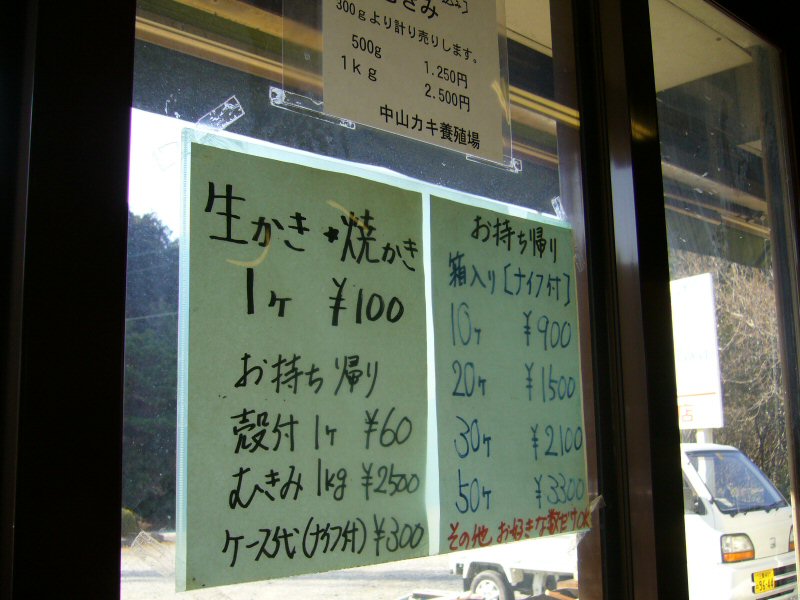 むきみ
300gより計り売りします。
500g 1.250円
1kg 2.500円
中山カキ養殖場
生かき・焼かき
1ヶ ¥100
お持ち帰り
殻付 1ヶ ¥60
むきみ 1kg ¥2500
ケース代(ナイフ付) ¥300
お持ち帰り
箱入り[ナイフ付]
10ヶ ¥900
20ヶ ¥1500
30ヶ ¥2100
50ヶ ¥3300
その他、お好きな数だけOK